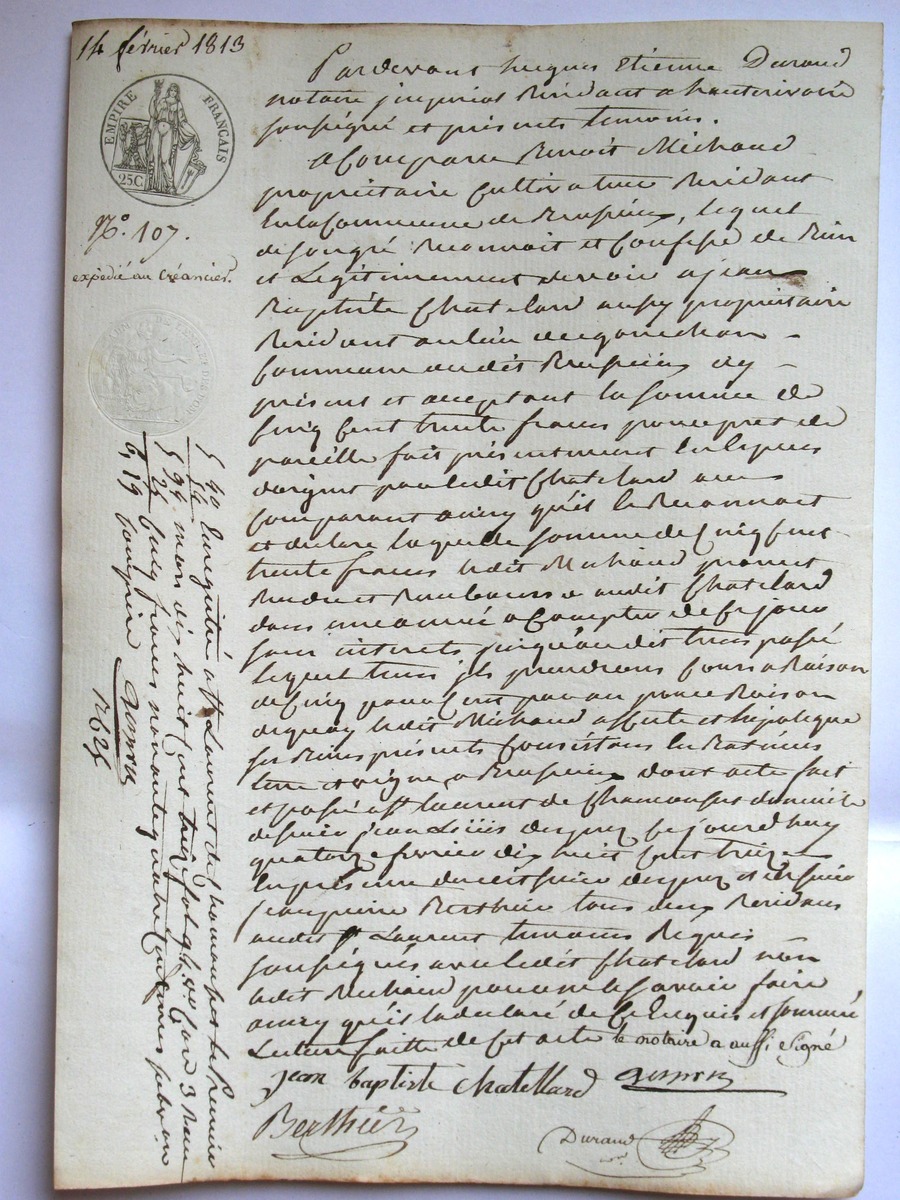 14 février 1813
EMPIRE FRANÇAIS
25C
N.° 107.
expédié au Créancier.
Pardevant hugues Etienne Durand
notaire imperial Residant a hauterivoire
sousigné et présents temoins.
a Comparu Benoit Michaud
propriétaire Cultivateur Residant
en la Commune de Brussieu, lequel
de son gré Reconnoit et Confesse de Bien
et Legitimement devoir a jean
Baptiste Chatelard aussy propriétaire
Residant au lieu de
Commune dudit Brussieu icy
présent et acceptant la somme de
Cinq Cent trente francs pour pret de
pareille fait présentement en especes
d'argent par ledit Chatelard au
Comparant ainsy qu'il le Reconnoit
et declare laquelle somme de Cinq Cent
trente francs ledit Michaud promet
Rendre et Rembourser audit Chatelard
dans une année a Compter de Ce jour
sans interets jusqu'audit tems passé
lequel tems ils prendront Cours a Raison
de Cinq pour Cent par an pour Raison
de quoy ledit Michaud affecte et hipoteque
ses Biens présents Consistans en Batimens
terre et vigne a Brussieu dont acte fait
et passé a st Laurent de Chamousset domicile
de sieur jean Louis desgrez Ce jourd'huy
quatorze fevrier dix huit Cent treize
En présence dudit sieur desgrez et de sieur
jean pierre Berthier tous deux Residans
audit st Laurent temoins Requis
sousignés avec ledit Chatelard non
ledit Michaud pour ne le savoir faire
ainsy qu'il l'a declaré de Ce Enquis et sommé
Lecture faitte de Cet acte le notaire a aussi signé
jean baptiste Chatellard
Berthier
Durand
Enregistré a st Laurent de Chamousset le
mars dix huit Cent treize fol
5 94 Reçu
Cinq francs nonante quatre Centimes